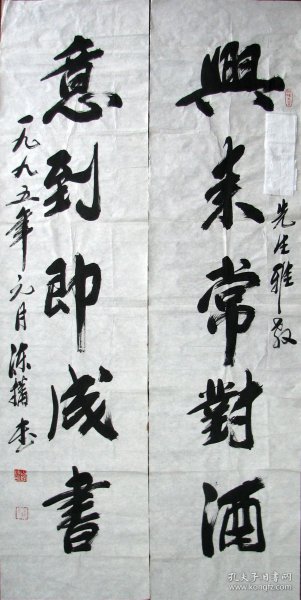 興来常對酒
先生雅教
意到即成書
一九九五年元月陈
孔夫子旧书网